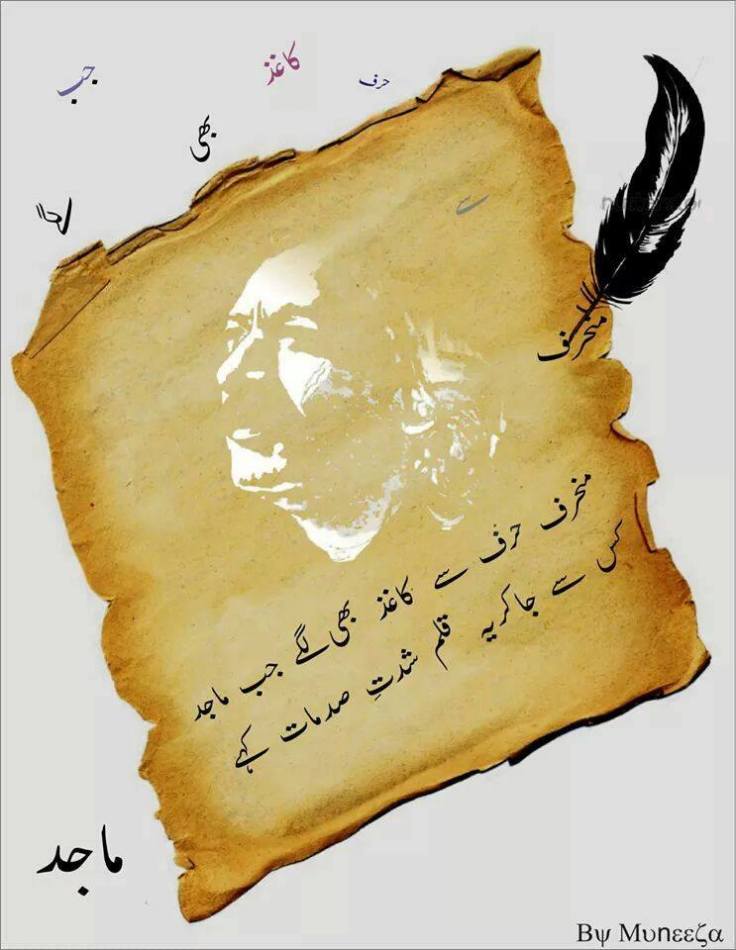 جب
کاغذ
حرف
بھی
لگے
سے
منحرف
منحرف حرف سے کاغذ بھی لگے جب ماجد
کس سے جا کر یہ قلم شدتِ صدمات کہے
ماجد
By Muneeza